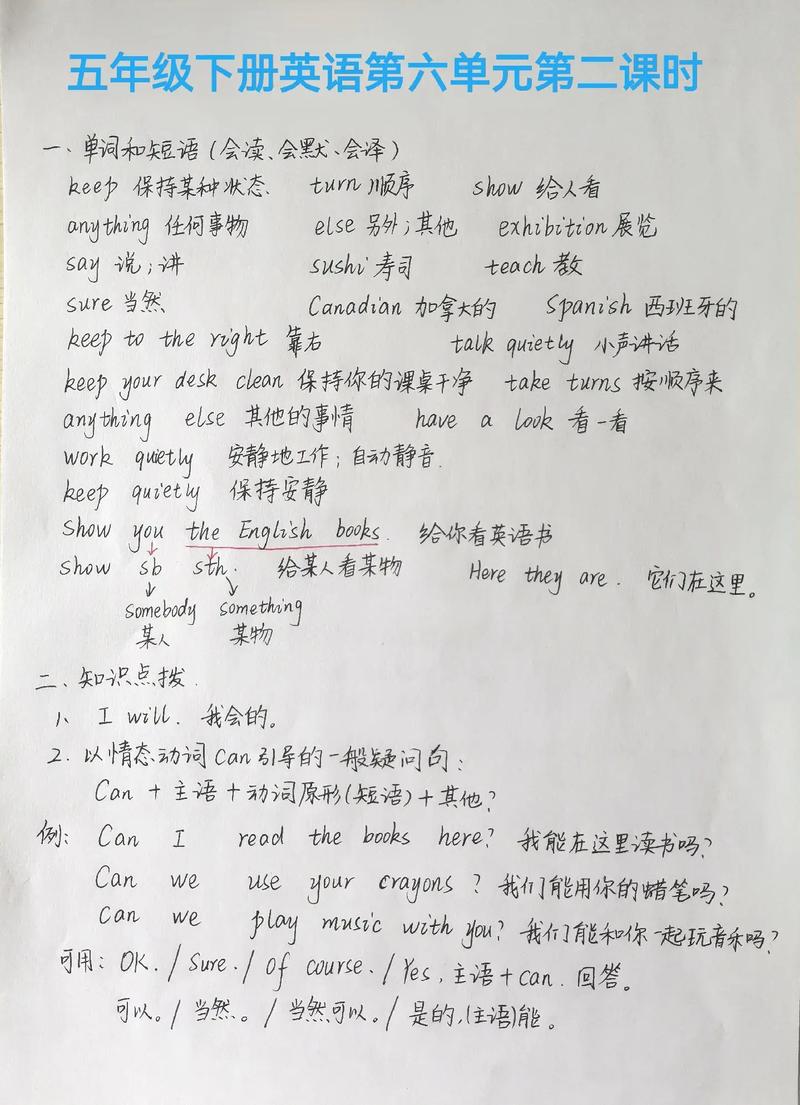 五年级下册英语第六单元第二课时
一、单词和短语(会读、会默、会译)
keep 保持某种状态 turn 顺序 show 给人看
anything 任何事物 else 另外;其他 exhibition 展览
say 说;讲 sushi 寿司 teach 教
sure 当然 Canadian 加拿大的 Spanish 西班牙的
keep to the right 靠右 talk quietly 小声讲话
keep your desk clean 保持你的课桌干净 take turns 按顺序来
anything else 其他的事情 have a look 看一看
work quietly 安静地工作;自动静音.
keep quietly 保持安静
show you the English books. 给你看英语书
show sb sth. 给某人看某物 Here they are. 它们在这里。
somebody something
某人 某物
二、知识点拨.
1、I will. 我会的。
2. 以情态动词Can引导的一般疑问句:
Can + 主语 + 动词原形(短语) + 其他?
例: Can I read the books here? 我能在这里读书吗?
Can we use your crayons ? 我们能用你的蜡笔吗?
Can we play music with you? 我们能和你一起玩音乐吗?
可用: OK. / Sure. / Of course. / Yes, 主语+can. 回答。
可以。/ 当然。/ 当然可以。/ 是的,(主语)能。